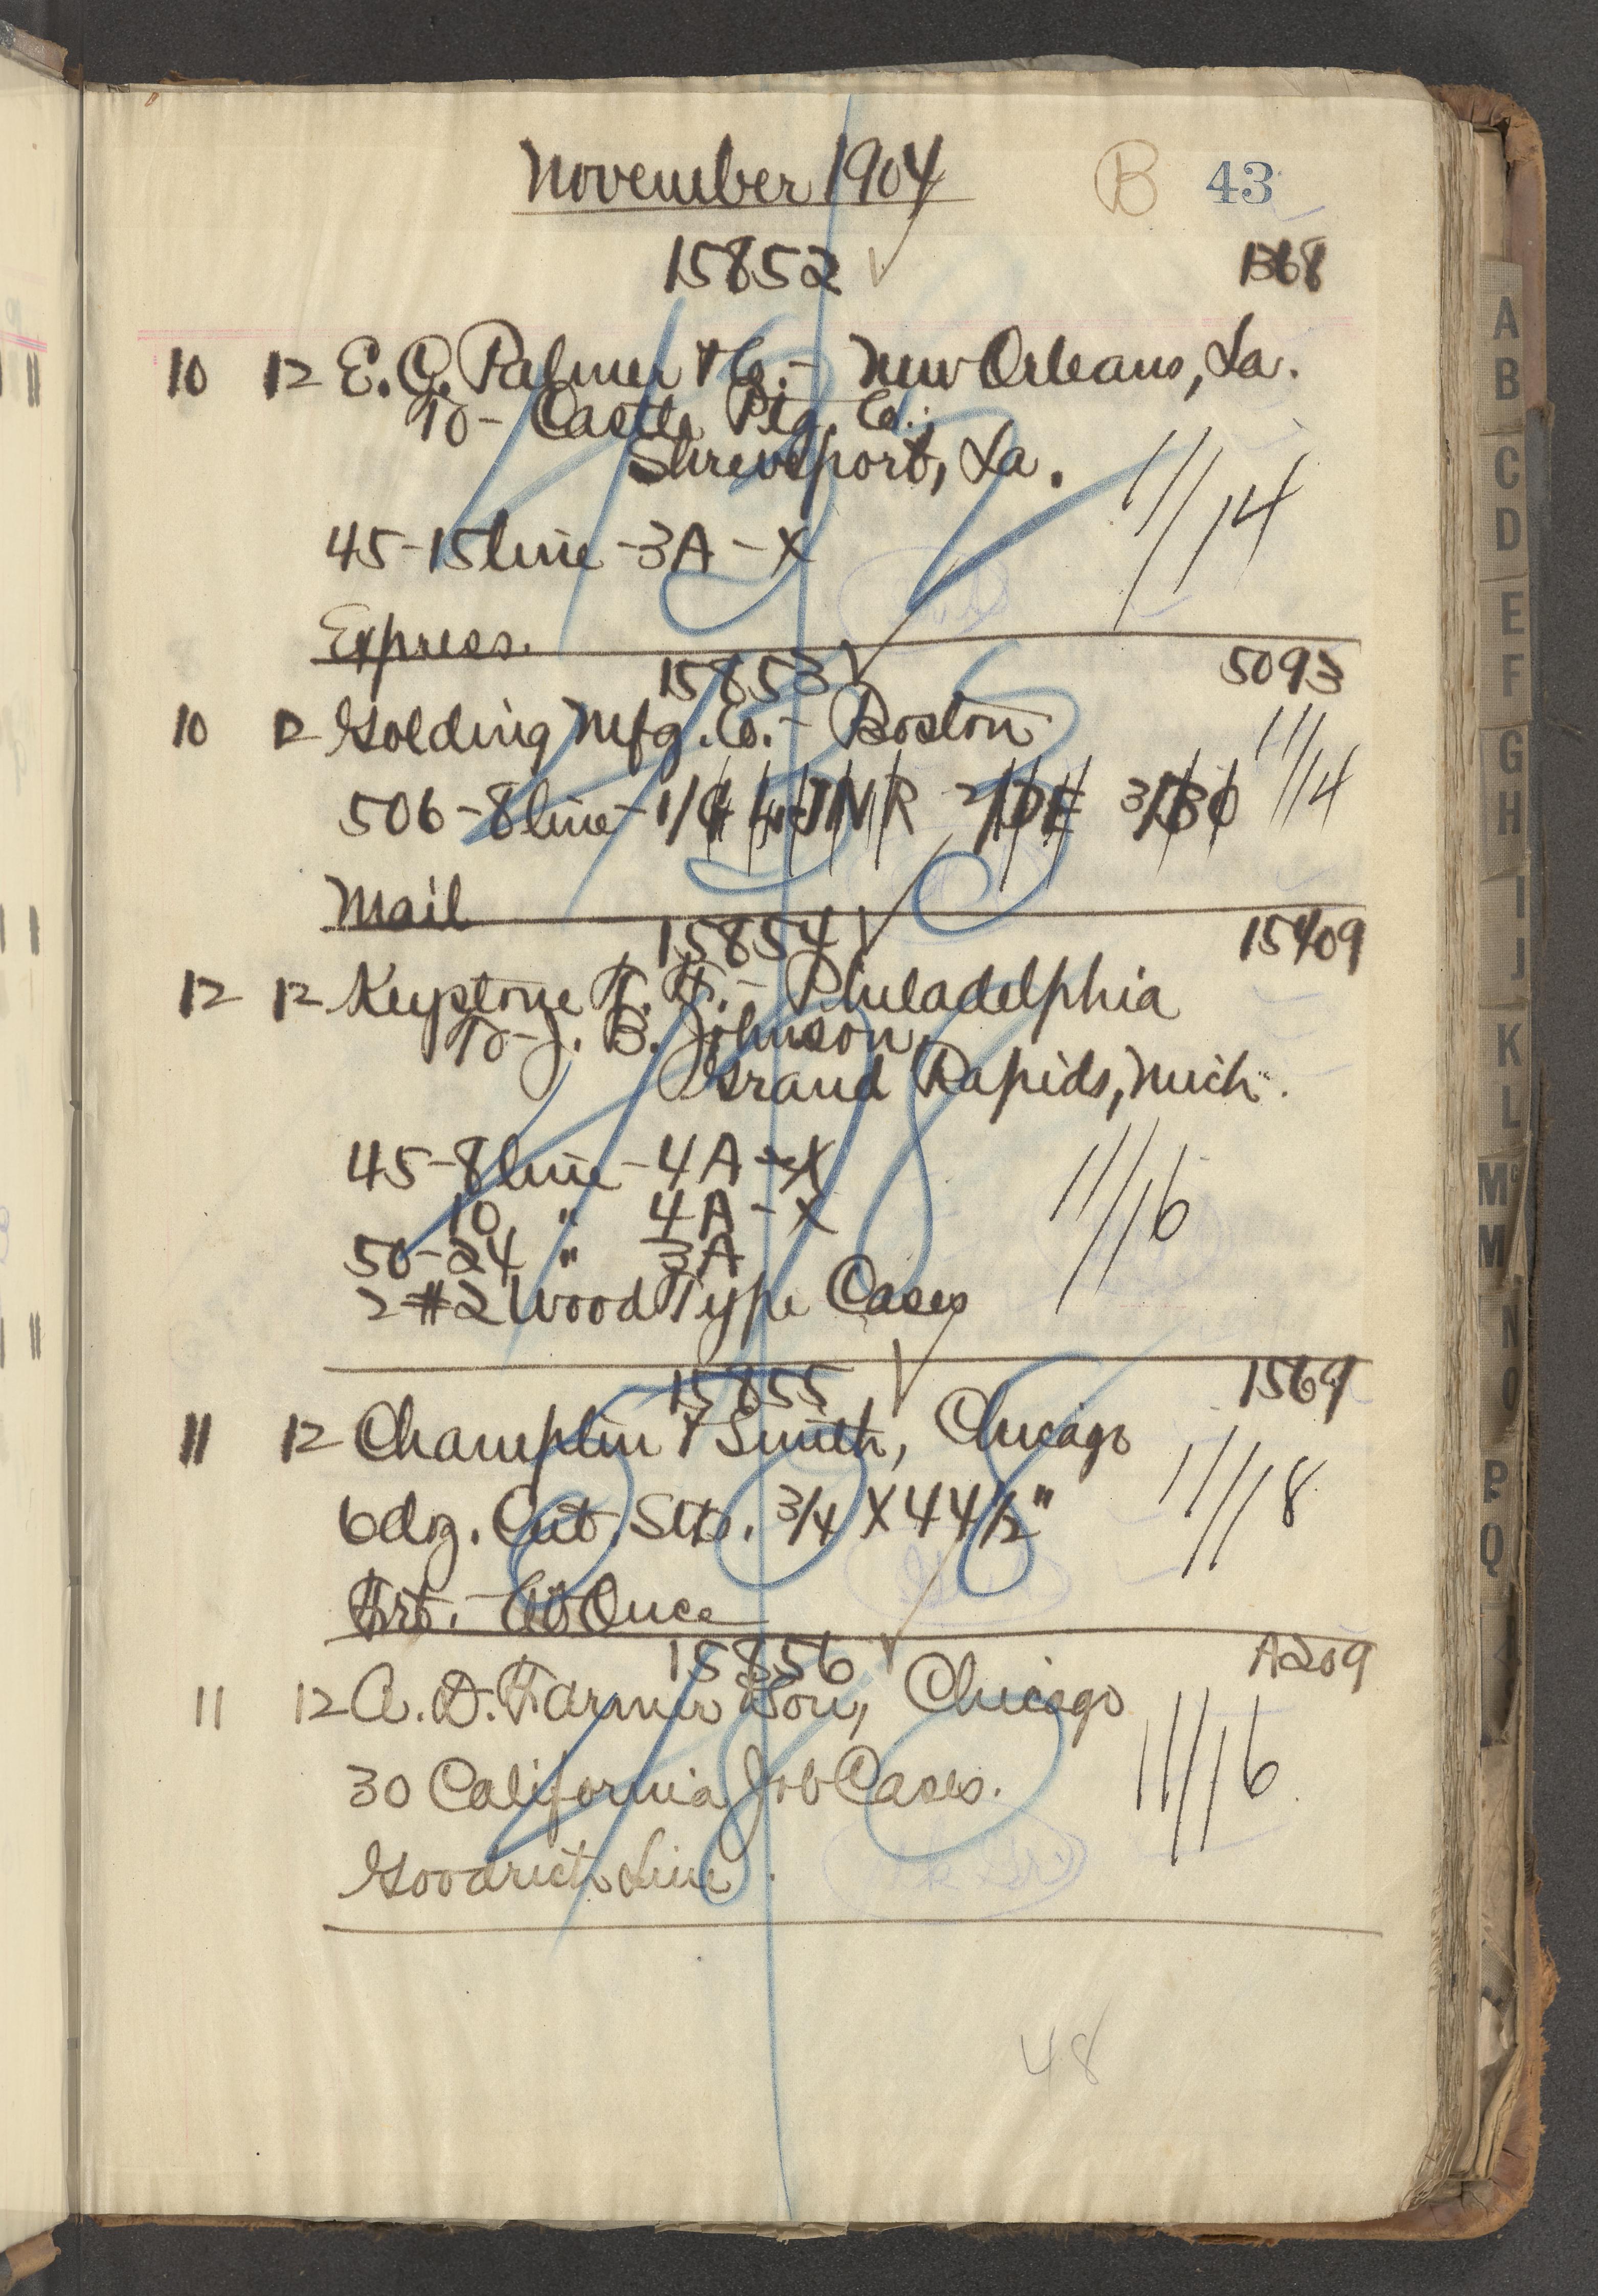 November 1904 B 43
15852 B68
10 12 E. C. Palmer & Co. - New Orleans, La.
To - Castle Ptg. Co.,
Shreveport, La.
11/14
45-15 line - 3A - X
Express.
15853 5093
10 12 Golding Mfg. Co. - Boston
11/14
506 - 8 line - 2/DE 3/BO
Mail
15854 15409
12 12 Keystone T. F. - Philadelphia
To - J. B. Johnson,
Grand Rapids, Mich.
45-8 line - 4A - X
11/16
10 " 4A - X
50-24 " 3A
2 #2 Wood Type Cases
15855 1569
11 12 Champlin & Smith, Chicago
11/18
6 dz. Cut. Stks. 3/4 X 44 1/2"
Frt. - At Once
15856 A209
11 12 A. D. Farmer Son, Chicago
11/16
30 California Job Cases.
Goodrich Line.
48
A
B
C
D
E
F
G
H
I
J
K
L
Mc
M
N
O
P
Q